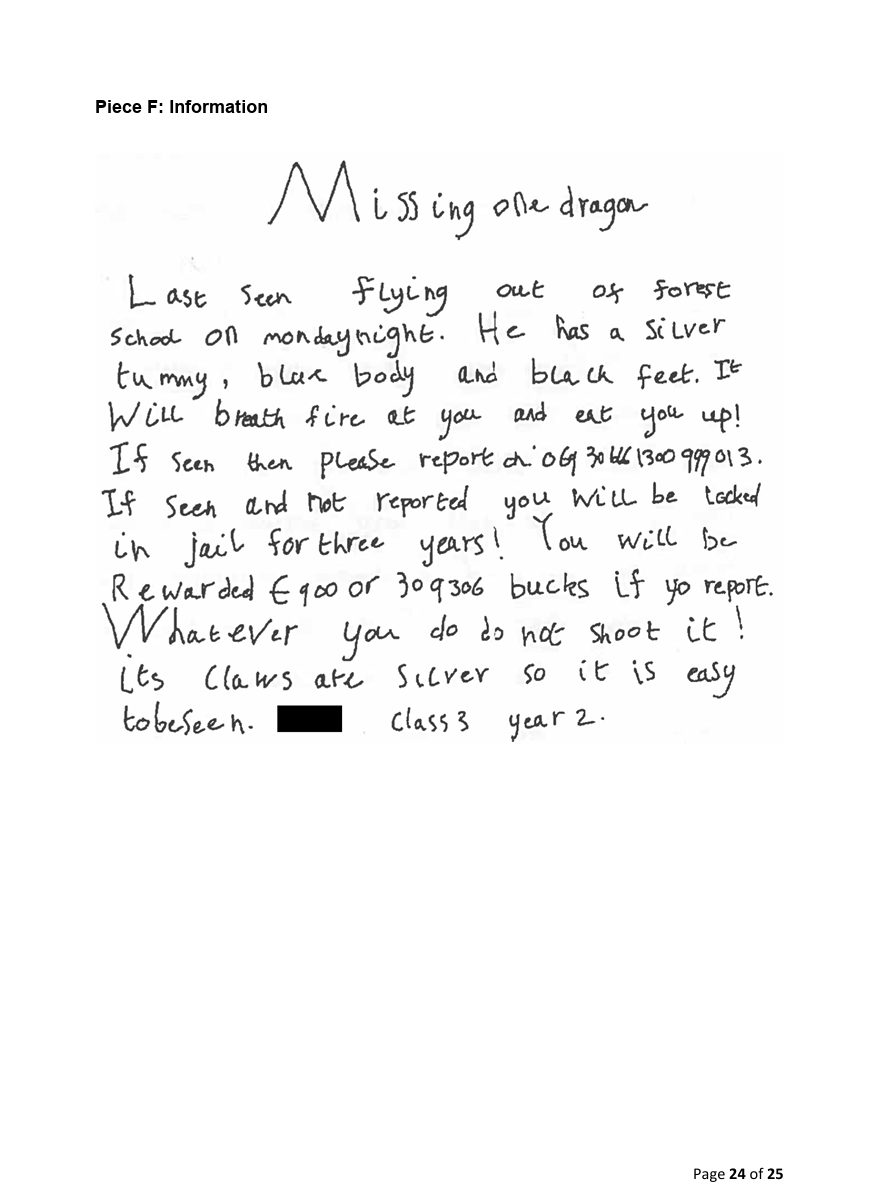 Piece F: Information
Missing one dragon
Last seen flying out of forest
school on mondaynight. He has a silver
tummy, blue body and black feet. It
will breath fire at you and eat you up!
If seen then please report on
If seen and not reported you will be locked
in jail for three years! You will be
Rewarded €900 or 309306 bucks if yo report.
Whatever you do do not shoot it!
its claws are silver so it is easy
tobeseen. class 3 year 2.
Page 24 of 25